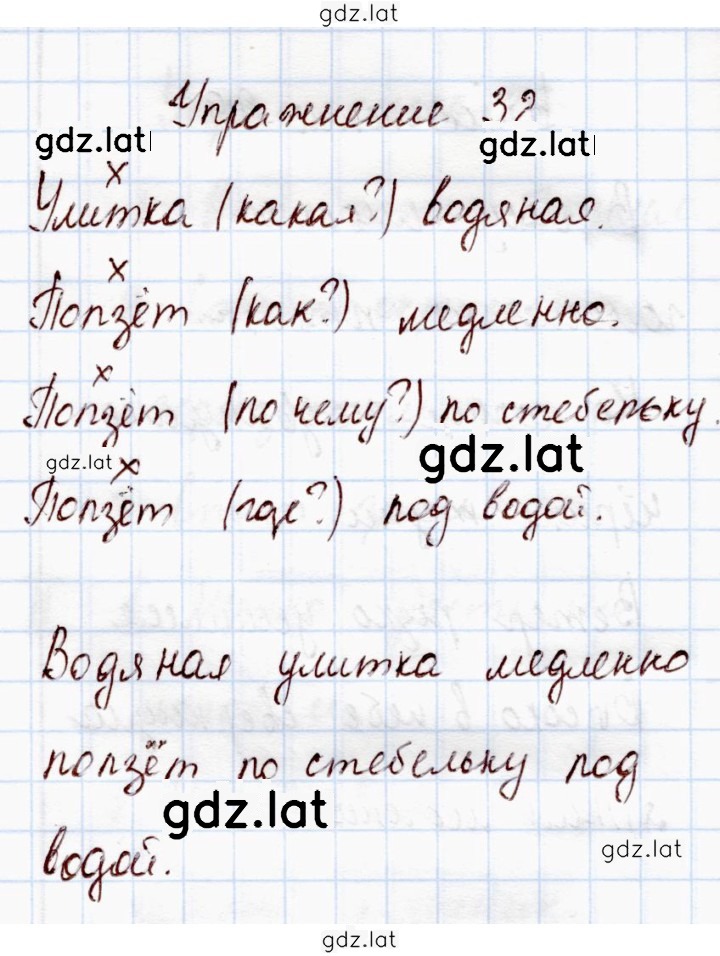 gdz.lat
Упражнение 32
gdz.lat
gdz.lat
х
Улитка (какая?) водяная.
х
Ползёт (как?) медленно.
х
Ползёт (по чему?) по стебельку.
gdz.lat
х
gdz.lat
Ползёт (где?) под водой.
Водяная улитка медленно
ползёт по стебельку под
gdz.lat
водой.
gdz.lat
gdz.lat